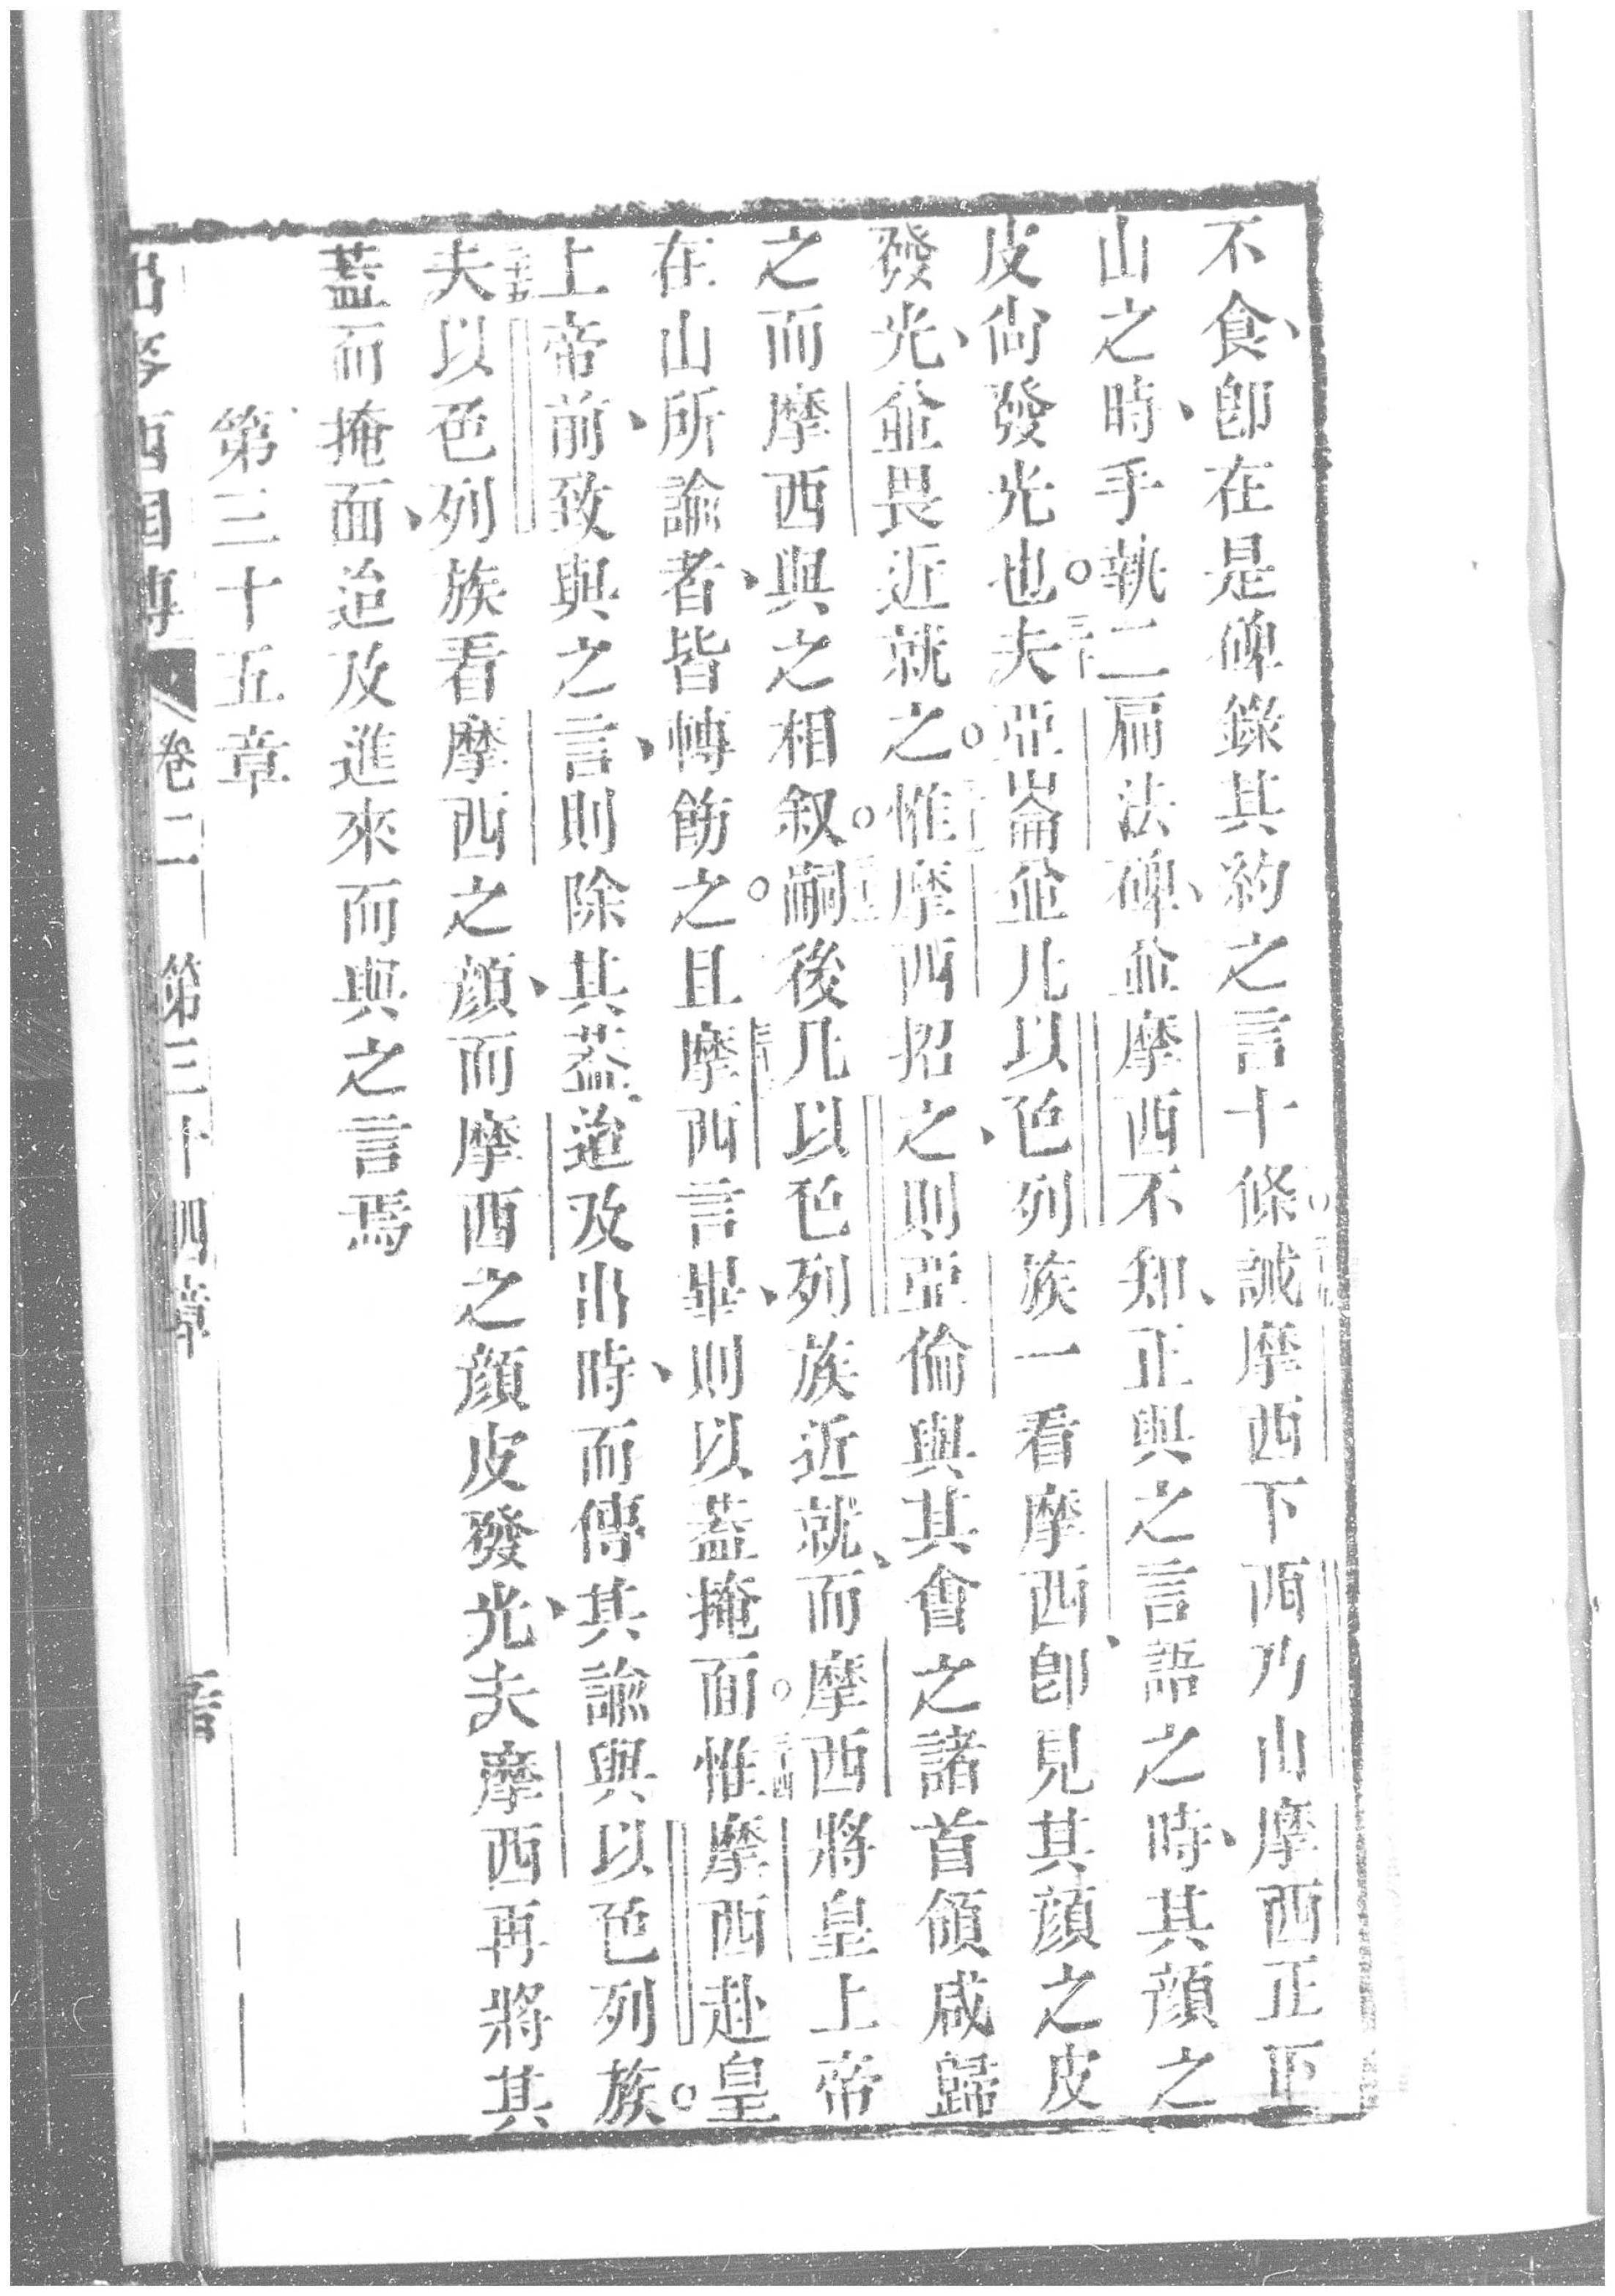 不食、卽在是碑錄其約之言十條。誡摩西下西乃山摩西正下
山之時、手執二扁法碑、並摩西不知、正與之言語之時、其顔之
皮尙發光也。三十夫亞崙並凡以色列族一看摩西、卽見其顔之皮
發光、並畏近就之。惟摩西招之、則亞倫與其會之諸首領咸歸
之而摩西與之相叙。嗣後凡以色列族近就、而摩西將皇上帝
在山所諭者、皆轉飭之。且摩西言畢、則以蓋掩面。惟摩西赴皇
上帝前、致與之言、則除其蓋、迨及出時、而傳其諭與以色列族。
夫以色列族看摩西之顔、而摩西之顔皮發光、夫摩西再將其
蓋而掩面、迨及進來而與之言焉
第三十五章
出麥西國傳 卷二 第三十四章